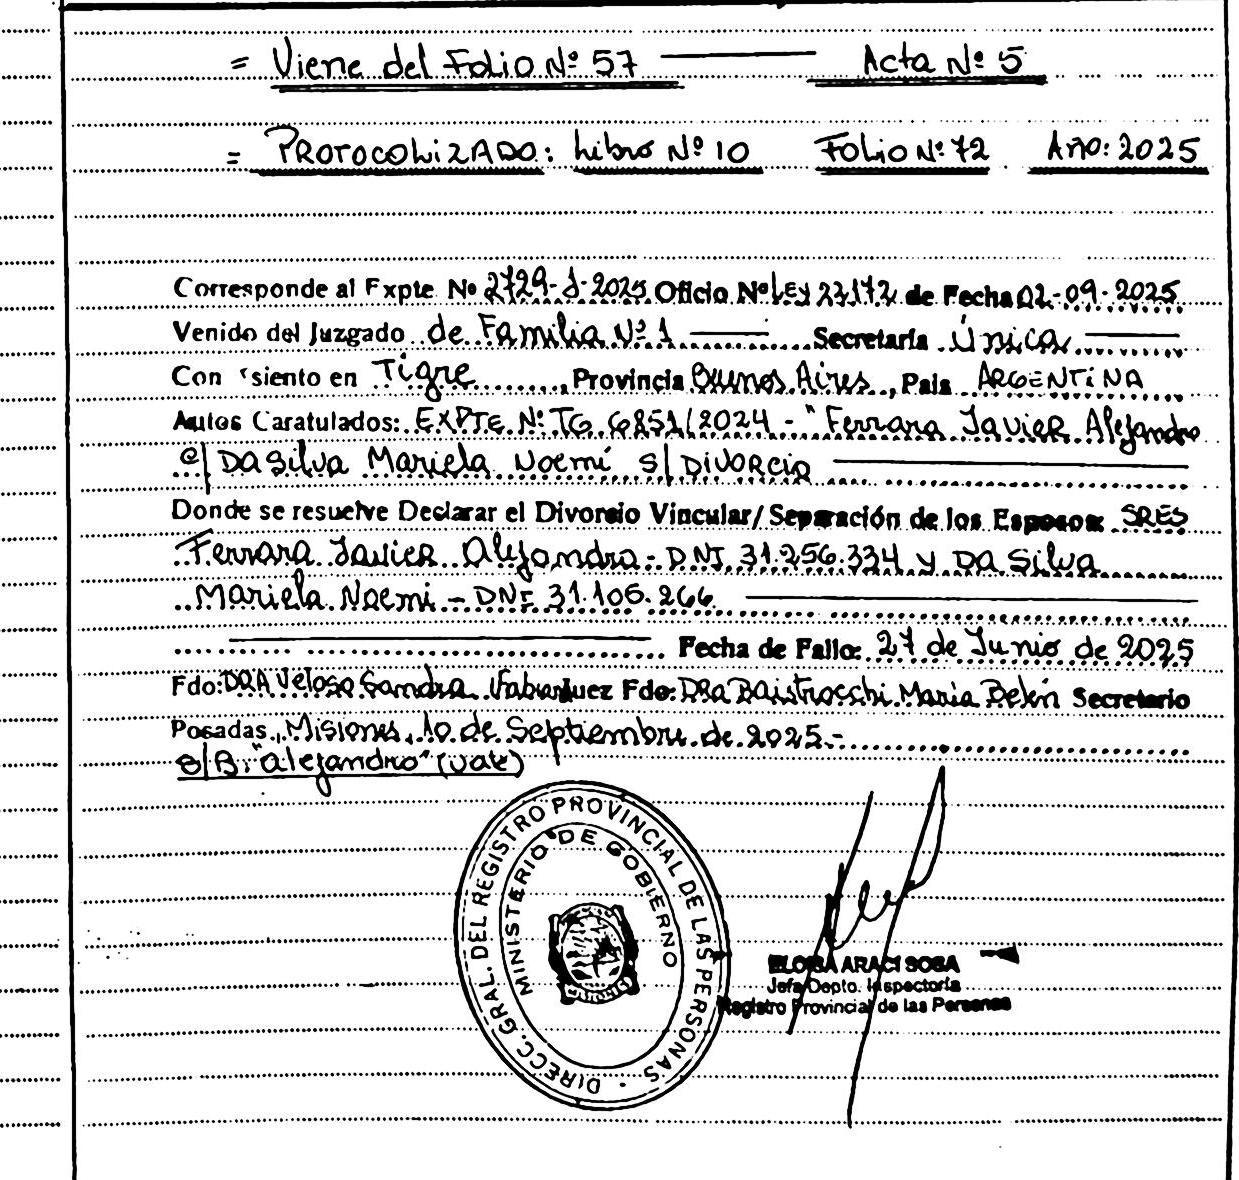 = Viene del Folio Nº 57 ——— Acta Nº 5
= PROTOCOLIZADO: Libro Nº 10 FOLIO Nº 72 AÑO: 2025
Corresponde al Expte Nº 2729-J-2025 Oficio Nº LEY 22172 de Fecha 02-09-2025
Venido del Juzgado de Familia Nº 1 ——— Secretaría Única ———
Con siento en Tigre, Provincia Buenos Aires, País ARGENTINA
Autos Caratulados: EXPTE Nº TG 6851/2024 - "Ferrara Javier Alejandro
c/ DA Silva Mariela Noemí s/ DIVORCIO ———
Donde se resuelve Declarar el Divorcio Vincular/Separación de los Esposos: SRES
Ferrara Javier Alejandro - DNI 31.256.334 y DA Silva
Mariela Noemi - DNI 31.105.266 ———
——— Fecha de Fallo: 27 de Junio de 2025
Fdo: DRA Veloso Sandra Juez Fdo: DRA Baistrocchi Maria Belén Secretario
Posadas, Misiones, 10 de Septiembre de 2025.-
S/B: "alejandro" (vale)
DIRECC. GRAL. DEL REGISTRO PROVINCIAL DE LAS PERSONAS
MINISTERIO DE GOBIERNO
ELOISA ARACI SOSA
Jefa Depto. Inspectoría
Registro Provincial de las Personas